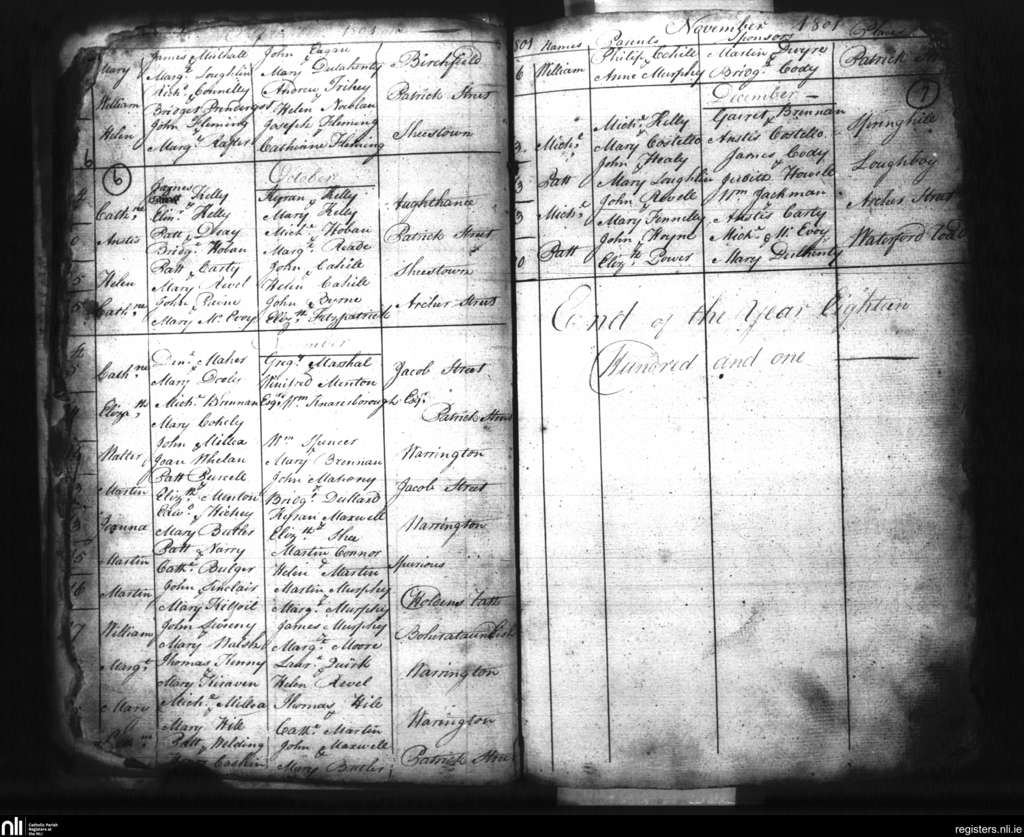 1801
Mary James Mulhall John Eagan Birchfield
Marg.t Loughlin Mary Dulahenty
William Rich.d Connelley Andrew Trihey Patrick Street
Bridget Prendergast Helen Noehlan
Helen John Fleming Joseph Fleming Sheestown
Marg.t Rafter Catherine Fleming
6
October
Cath.ne James Kelly Kyran Kelly Aughthance
Eliz. Kelly Mary Kelly
Anstis Patt Deay Mich.l Hoban Patrick Street
Bridg.t Hoban Marg.t Reade
Helen Patt Carty John Cahill Sheestown
Mary Revel Helen Cahill
5 Cath.ne John Reine John Byrne Archer Street
Mary Mc Evoy Eliz.th Fitzpatrick
Cath.ne Den.s Maher Greg.y Mashal Jacob Street
Mary Winifred Menton
Elizath Mich.l Brennan Esq.r Wm Knaresborough Esq.r Patrick Street
Mary Cohely
Walter John Millea Wm Spencer Warrington
Joan Whelan Mary Brennan
Martin Patt Purcell John Mahony Jacob Street
Eliz.th Menton Bridg.t Dullard
Joanna Edw.d Hickey Kyran Maxwell Warrington
Mary Butler Eliz.th Shee
5 Martin Patt Narry Martin Connor Spurious
Cath.e Bulger Helen Martin
Martin John Sinclair Martin Murphy
Mary Marg.t Murphy
7 William John Sweeny James Murphy
Mary Walsh Marg.t Moore
Marg.t Thomas Kenny Laur.e Quirk Warrington
Mary Kiraven Helen Revel
Mary Mich.l Millea Thomas Hile Warington
Mary Hile Cath.e Martin
Patt Welding John Maxwell Patrick Stree
Mary Butler
November 1801
801 Names Parents Sponsors Places
6 William Philip Cohill Martin Dwyre Patrick Street
Anne Murphy Bridg.t Cody
7
December
3 Mich.l Mich.l Kelly Garret Brennan Springhill
Mary Costello Anstis Costello
3 Patt John Healy James Cody Loughboy
Mary Loughlin Judith Howell
3 Mich.l John Revell Wm Jackman Archer Street
Mary Fennelly Anstis Carty
Patt John Hoyne Mich.l Mc Evoy Waterford Road
Eliz.th Power Mary Dulhenty
End of the Year Eighteen
Hundred and one
nli
Catholic Parish
Registers at
the NLI
registers.nli.ie